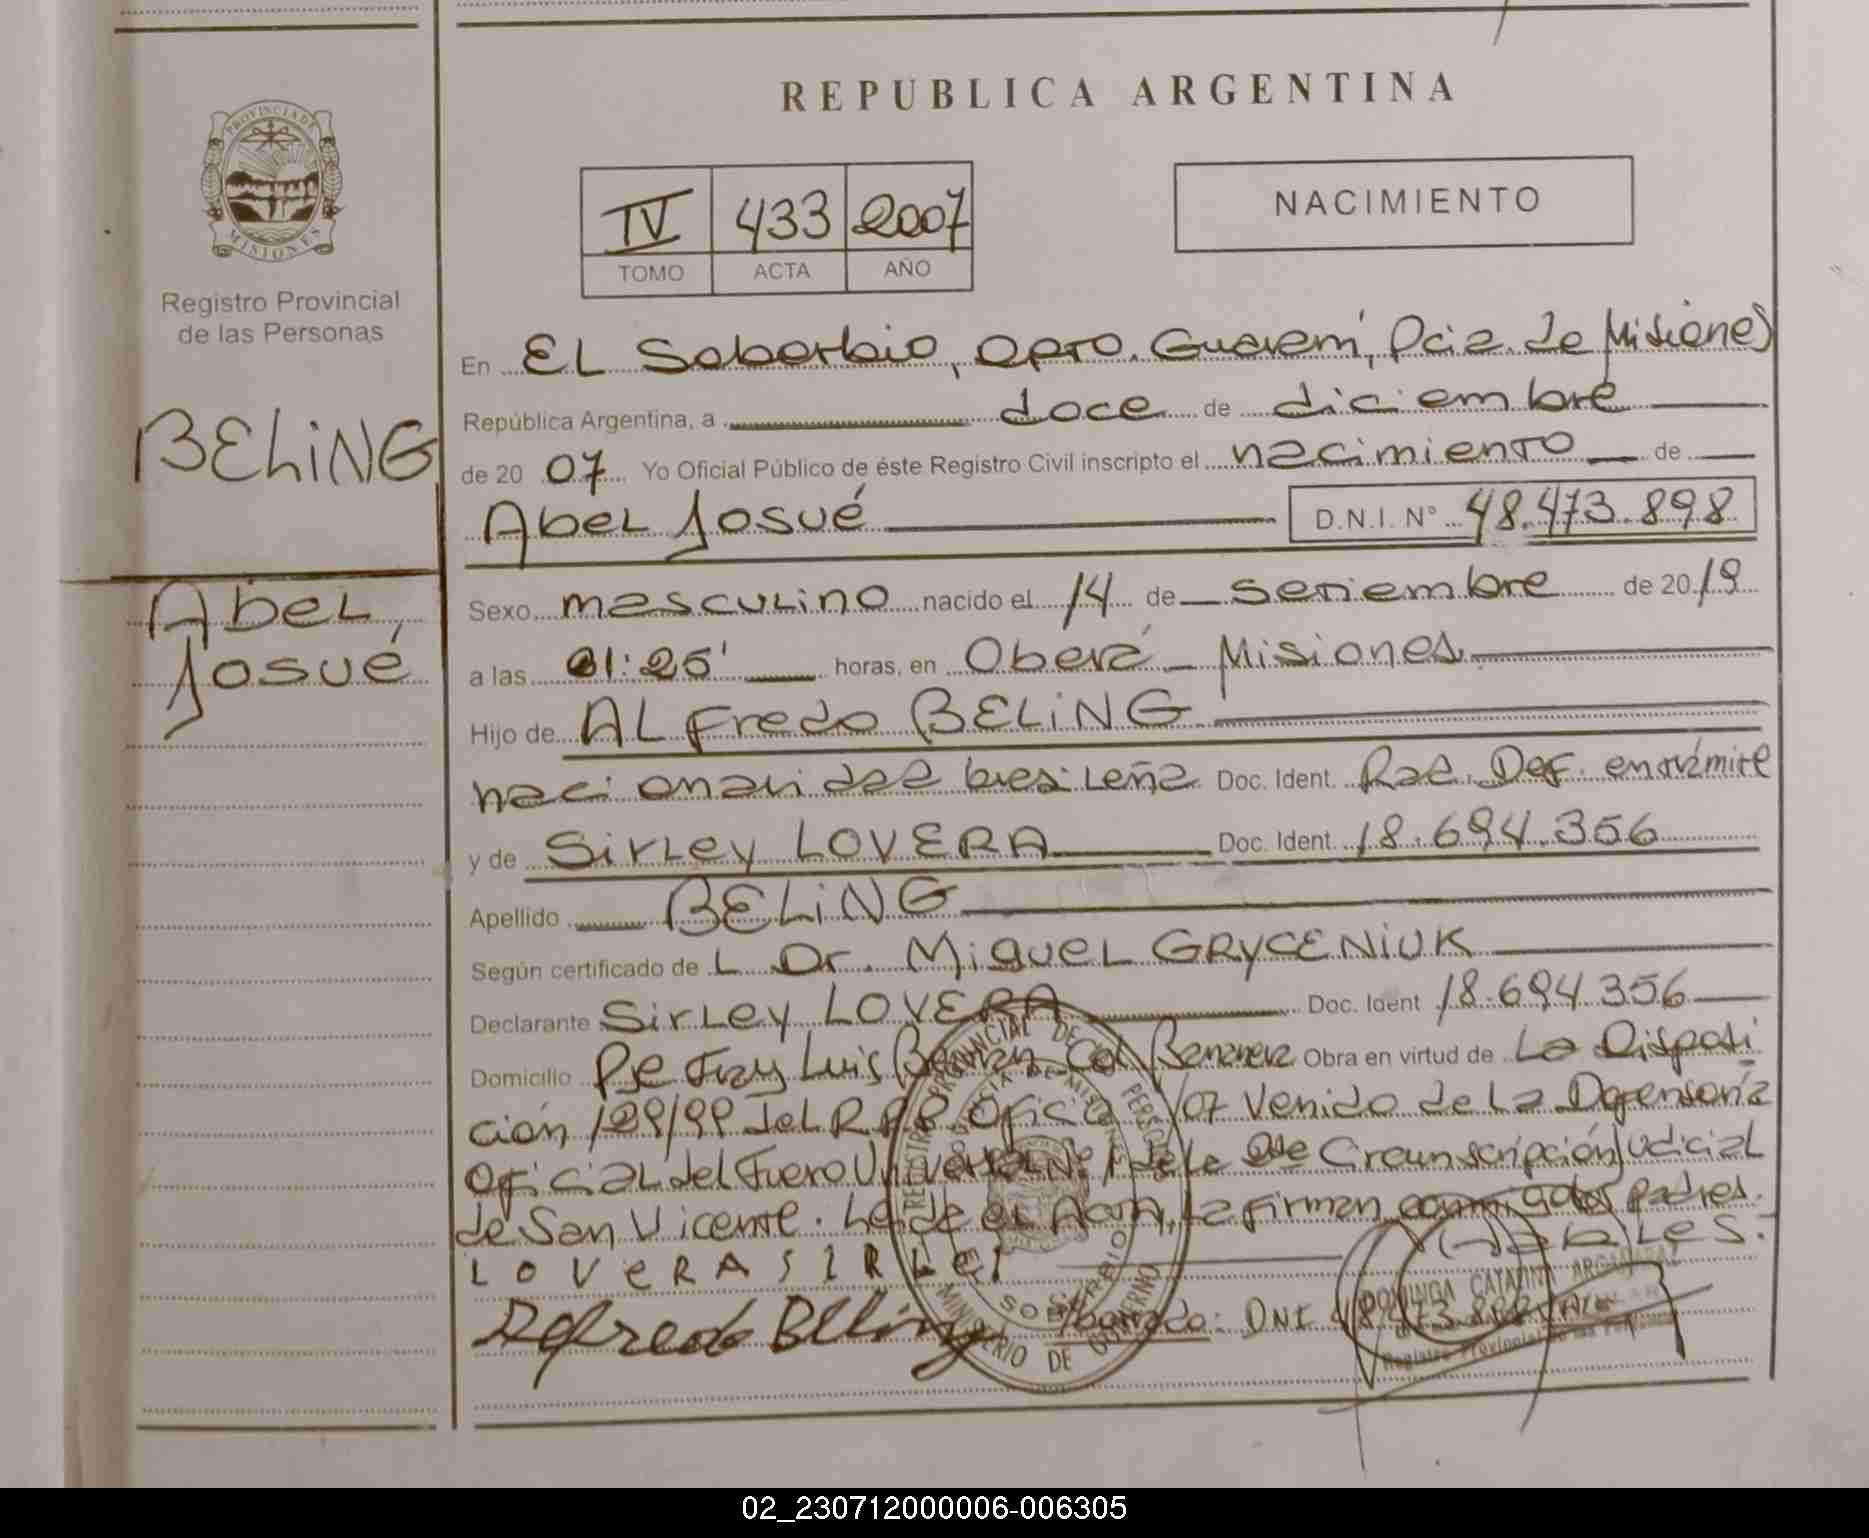 PROVINCIA DE
MISIONES
Registro Provincial
de las Personas
BELiNG
Abel,
Josué
REPUBLICA ARGENTINA
IV 433 2007
TOMO ACTA AÑO
NACIMIENTO
En EL Soberbio, Dpto. Guaraní, Pcia. de Misiones
República Argentina, a doce de diciembre
de 20 07 Yo Oficial Público de éste Registro Civil inscripto el nacimiento de
Abel Josué D.N.I. N° 48.473.898
Sexo masculino nacido el 14 de setiembre de 20
a las 01:25' horas, en Oberá - Misiones
Hijo de ALfredo BELiNG
nacionalidad brasileña Doc. Ident. Rad. Def. en trámite
y de Sirley LOVERA Doc. Ident. 18.694.356
Apellido BELiNG
Según certificado de L Dr. Miguel GRYCENIUK
Declarante Sirley LOVERA Doc. Ident 18.694.356
Domicilio Pje Fray Luis Beltrán Col Bananera Obra en virtud de La Disposi
ción 129/99 del R.P.P. Oficio /07 Venido de La Defensoría
Oficial del Fuero Universal N° 1 de la 2da Circunscripción Judicial
de San Vicente. Leída el Acta, la firman conmigo los padres.
LOVERA SIRLEI
Alfredo Beling
borrado: DNI 48.473.898 VALE
REGISTRO PROVINCIAL DE LAS PERSONAS
PROVINCIA DE MISIONES
EL SOBERBIO
MINISTERIO DE GOBIERNO
DOMINGA CATALINA
Registro Provincial de las Personas
02_230712000006-006305